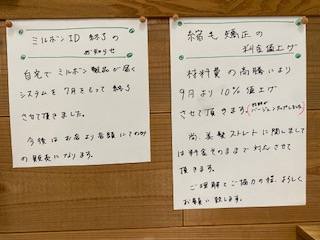 ミルボンID 終了の
お知らせ
自宅でミルボン製品が届く
システムを7月をもって終了
させて頂きました。
今後はお店より店頭にてのみ
の販売になります。
縮毛矯正の
料金値上げ
材料費の高騰により
9月より10%値上げ
させて頂きます。
バージョンUPしました
尚、美髪ストレートに関しまして
は料金そのままで対応させて
頂きます。
ご理解とご協力の程、よろしく
お願い致します。